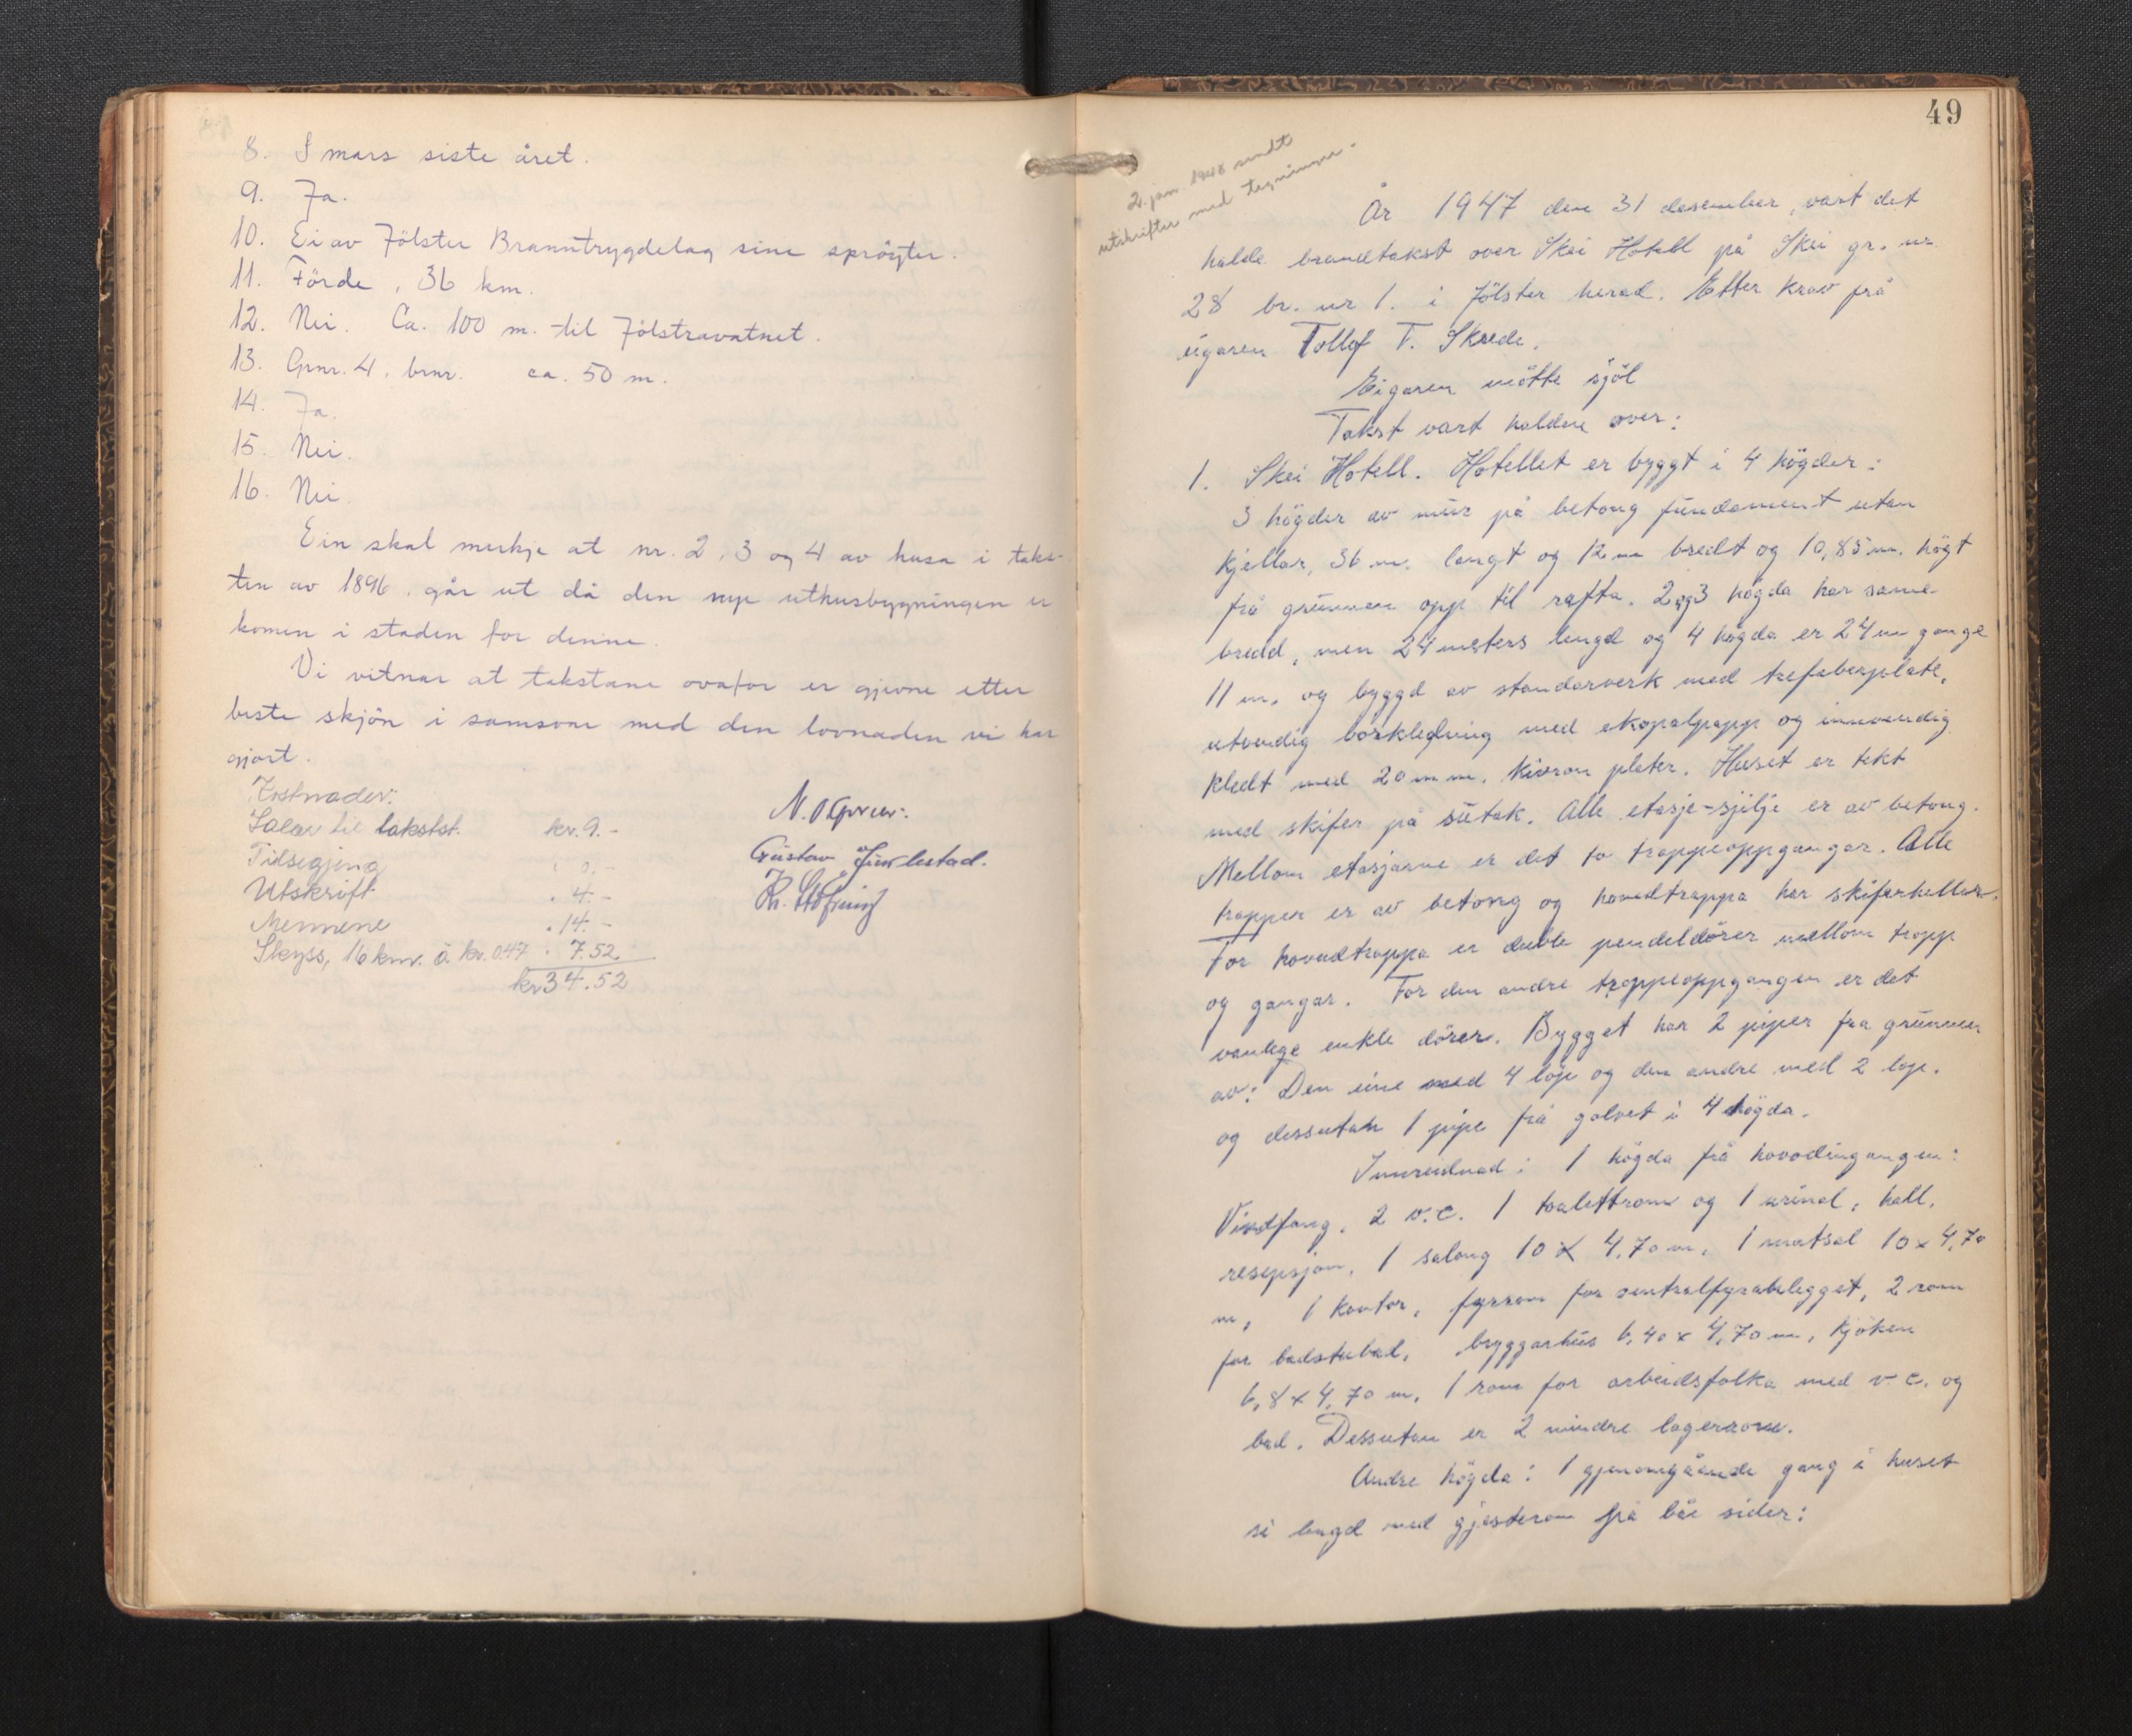 8. I mars siste året.
9. Ja.
10. Ei av Jölster Branntrygdelag sine spröyter.
11. Förde, 36 km.
12. Nei. Ca. 100 m. til Jölstravatnet.
13. Grnr. 4, brnr. ca. 50 m.
14. Ja.
15. Nei.
16. Nei.
Ein skal merkje at nr. 2, 3 og 4 av husa i taks-
ten av 1896, går ut då den nye uthusbygningen er
komen i staden for denne.
Vi vitnar at takstane ovafor er gjevne etter
beste skjön i samsvar med den lovnaden vi har
gjort.
Kostnader:
Salær til takstst. kr. 9.-
Tilsegjing " 0.-
Utskrift " 4.-
Mennene " 14.-
Skyss, 16 km. à kr. 0.47 " 7.52
kr 34.52
N. O.
Gustav
Kr.
49
2. jan. 1948 sendt
utskrifter med tegninger.
År 1947 den 31 desember, vart det
halde brandtakst over Skei Hotell på Skei gr. nr
28 br. nr 1. i Jölster herad. Etter krav frå
eigaren Tollef T. Skrede.
Eigaren mötte sjöl
Takst vart halden over:
1. Skei Hotell. Hotellet er byggt i 4 högder:
3 högder av mur på betong fundament utan
kjellar, 36 m. langt og 12 m bredt og 10,85 m. högt
frå grunnen opp til rafta. 2 og 3 högda har same
bredd, men 24 meters lengd og 4 högda er 24 m gange
11 m. og byggd av standarverk med trefiberplate,
utvendig bordkledning med ekopalpapp og innvendig
kledt med 20 m m. plater. Huset er tekt
med skifer på sutak. Alle etasje-skilje er av betong.
Mellom etasjarne er det to trappeoppgangar. Alle
trapper er av betong og hovedtrappa har skiferhellar.
For hovedtrappa er duble pendeldörer mellom trapp
og gangar. For den andre trappeoppgangen er det
vanlege enkle dörer. Bygget har 2 piper fra grunnen
av: Den eine med 4 löp og den andre med 2 löp.
og dessutan 1 pipe frå golvet i 4 högda.
Innreidnad: 1 högda frå hovedingangen:
Vindfang, 2 v.c. 1 toalettrom og 1 urinal, hall,
resepsjon, 1 salong 10 x 4,70 m, 1 matsal 10 x 4,70
m, 1 kontor, fyrrom for sentralfyranlegget, 2 rom
for badstubad, bryggarhus 6,40 x 4,70 m, kjöken
6,8 x 4,70 m, 1 rom for arbeidsfolka med v.c. og
bad. Dessutan er 2 mindre lagerrom.
Andre högda: 1 gjenomgåande gang i huset
si lengd med gjesterom på båe sider: